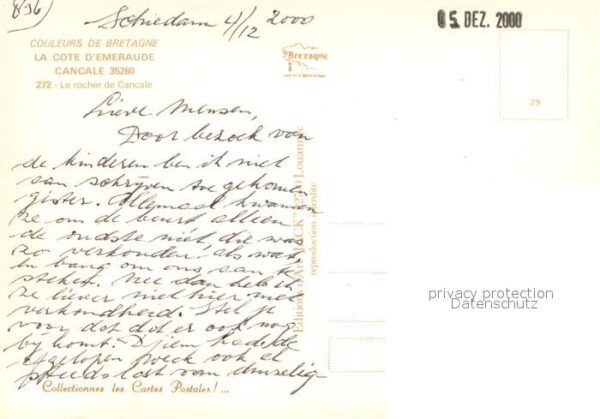 836)
Schiedam 4/12 2000
05. DEZ. 2000
COULEURS DE BRETAGNE
LA COTE D'EMERAUDE
CANCALE 35260
272 - Le rocher de Cancale
Bretagne
79
Lieve Mensen,
Door bezoek van
de kinderen ben ik niet
aan schrijven toe gekomen
gister. Allemaal kwamen
ze om de beurt alleen
de oudste niet, die was
zo verkouden. als was
en bang om ons aan te
steken. Nee dan heb ik
ze liever niet hier met
verkoudheid. Stel je
voor dat dat er ook nog
bij komt. Djiem had de
afgelopen week ook al
steeds last van
Editions d'Art "JACK" Louannec
reproduction interdite
privacy protection
Datenschutz
Collectionnez les Cartes Postales!...